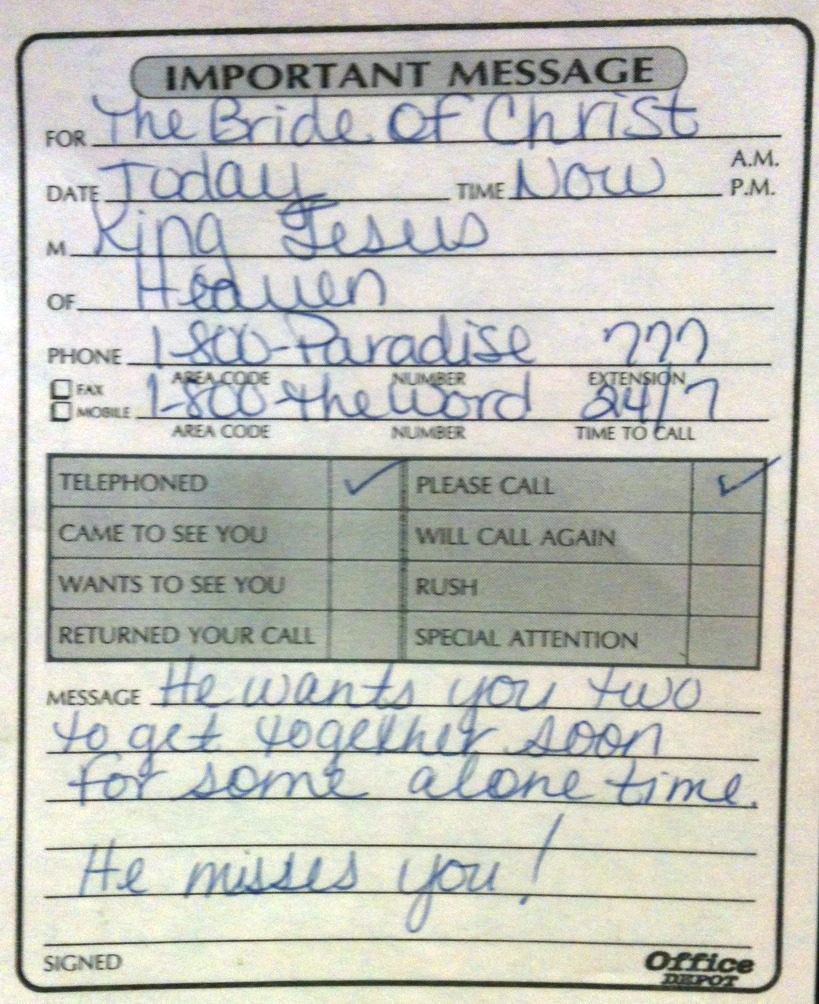 IMPORTANT MESSAGE
FOR The Bride of Christ
A.M.
DATE Today TIME Now P.M.
M. King Jesus
OF Heaven
PHONE 1-800-Paradise 777
AREA CODE NUMBER EXTENSION
FAX
MOBILE 1-800-the word 24/7
AREA CODE NUMBER TIME TO CALL
TELEPHONED ✓ PLEASE CALL ✓
CAME TO SEE YOU WILL CALL AGAIN
WANTS TO SEE YOU RUSH
RETURNED YOUR CALL SPECIAL ATTENTION
MESSAGE He wants you two
to get together soon
for some alone time.
He misses you!
SIGNED
Office DEPOT